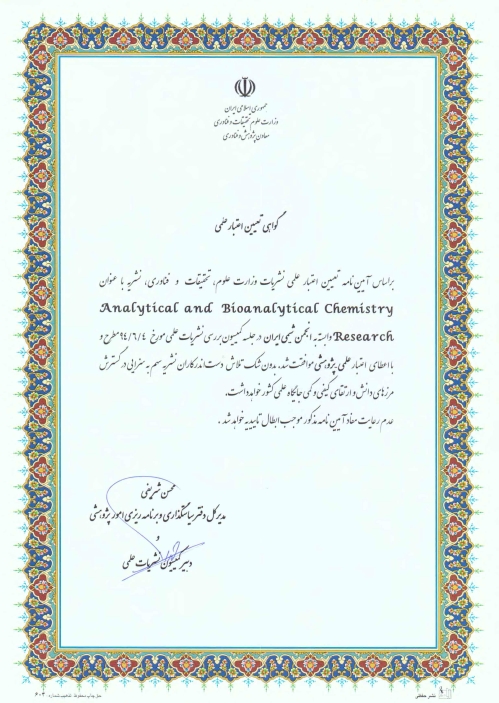 جمهوری اسلامی ایران
وزارت علوم تحقیقات و فناوری
معاون پژوهش و فناوری
گواهی تعیین اعتبار علمی
براساس آیین نامه تعیین اعتبار علمی نشریات وزارت علوم، تحقیقات و فناوری، نشریه با عنوان
Analytical and Bioanalytical Chemistry
Research وابسته به انجمن شیمی ایران در جلسه کمیسیون بررسی نشریات علمی مورخ ۹۴/۶/۴ مطرح و
با اعطای اعتبار علمی پژوهشی موافقت شد، بدون شک تلاش دست اندرکاران نشریه سهم به سزایی در گسترش
مرزهای دانش و ارتقای کیفی و کمی جایگاه علمی کشور خواهد داشت.
عدم رعایت مفاد آیین نامه مذکور موجب ابطال تاییدیه خواهد شد.
محسن شریفی
مدیرکل دفتر سیاستگذاری و برنامه ریزی امور پژوهشی
و
دبیر کمیسیون نشریات علمی
نشر حقیقی